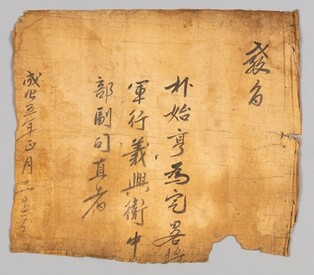 敎旨
朴始亨爲定畧將
軍行義興衛中
部副司直者
成化五年正月